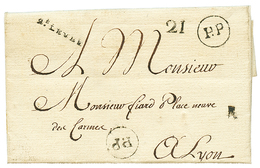 21
P.P
A Monsieur
Monsieur fiard Place neuve
des Carmes
P.P
A Lyon